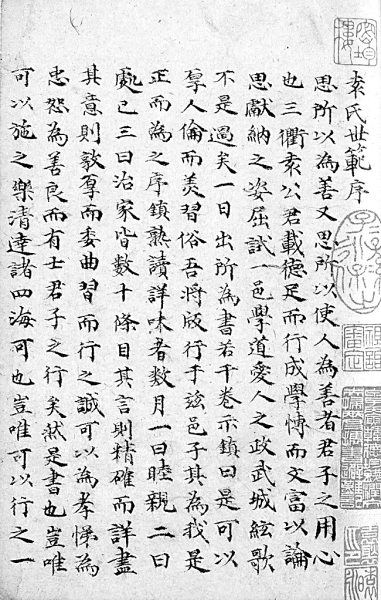 袁氏世範序
思所以為善又思所以使人為善者君子之用心
也三衢袁公君載德足而行成學博而文富以論
思獻納之姿屈試一邑學道愛人之政武城絃歌
不是過矣一日出所為書若干卷示鎮曰是可以
厚人倫而美習俗吾將版行于茲邑子其為我是
正而為之序鎮熟讀詳味者數月一曰睦親二曰
處己三曰治家皆數十條目其言則精確而詳盡
其意則敦厚而委曲習而行之誠可以為孝悌為
忠恕為善良而有士君子之行矣然是書也豈唯
可以施之樂清達諸四海可也豈唯可以行之一